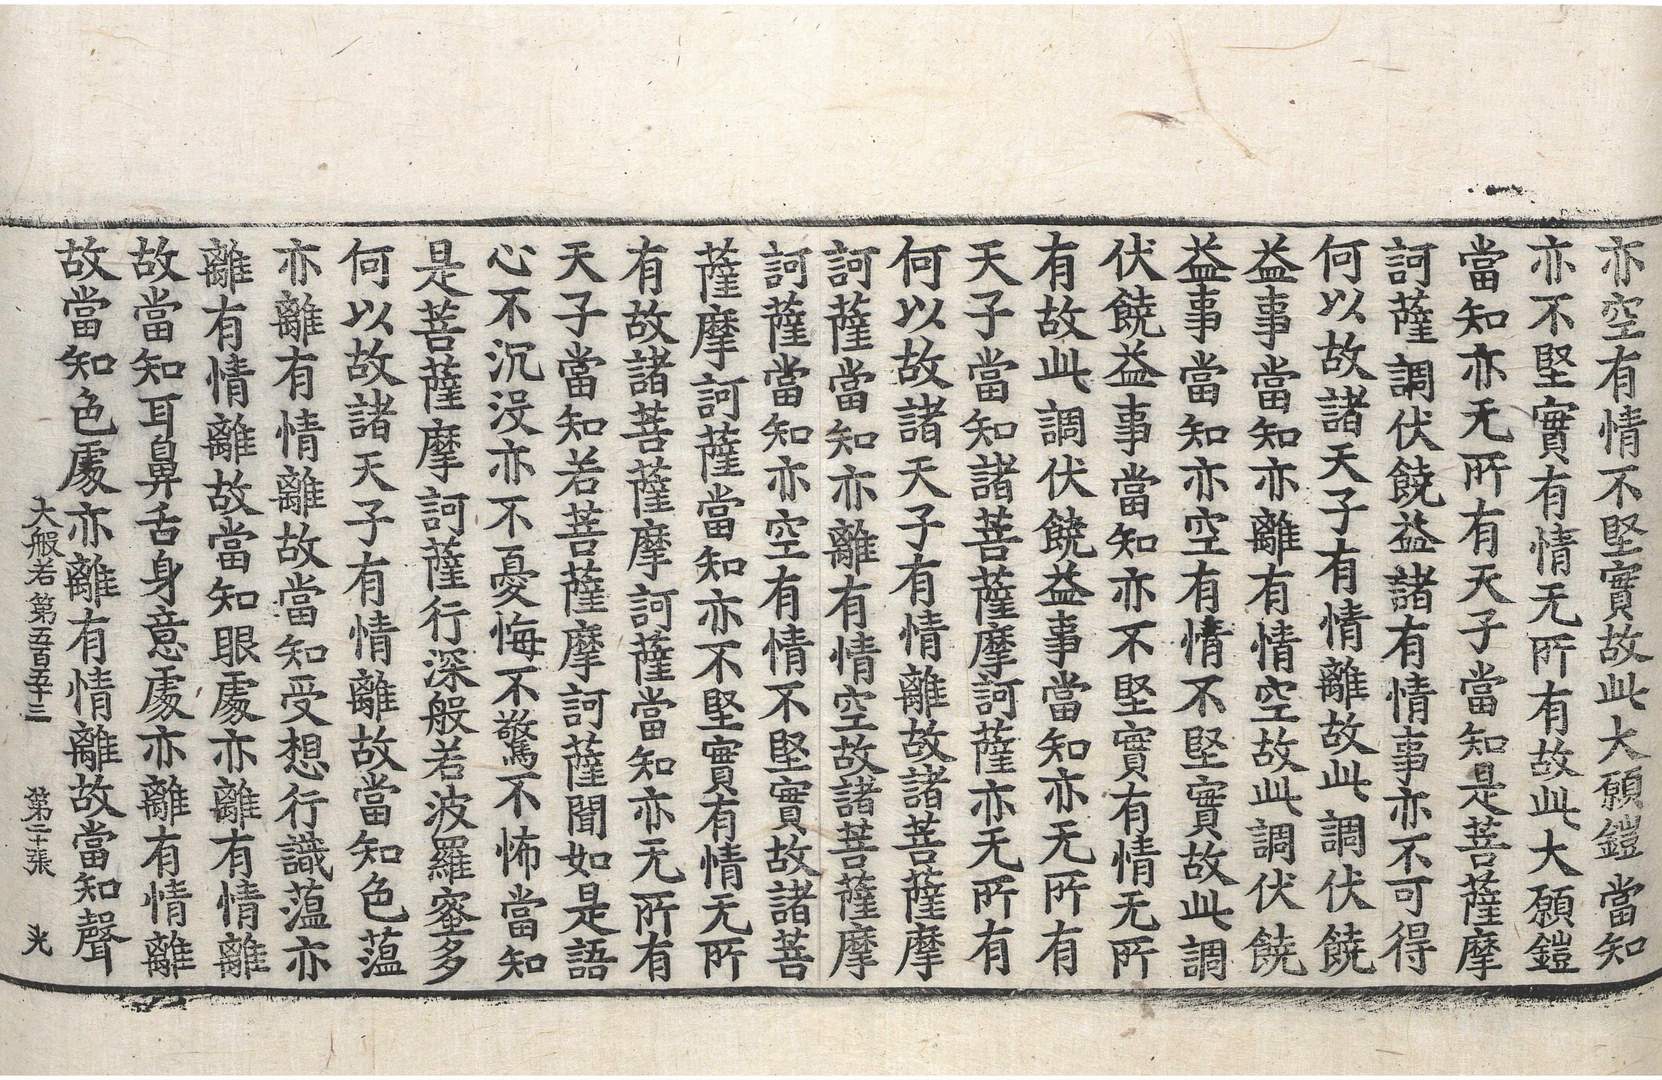 亦空有情不堅實故此大願鎧當知
亦不堅實有情无所有故此大願鎧
當知亦无所有天子當知是菩薩摩
訶薩調伏饒益諸有情事亦不可得
何以故諸天子有情離故此調伏饒
益事當知亦離有情空故此調伏饒
益事當知亦空有情不堅實故此調
伏饒益事當知亦不堅實有情无所
有故此調伏饒益事當知亦无所有
天子當知諸菩薩摩訶薩亦无所有
何以故諸天子有情離故諸菩薩摩
訶薩當知亦離有情空故諸菩薩摩
訶薩當知亦空有情不堅實故諸菩
薩摩訶薩當知亦不堅實有情无所
有故諸菩薩摩訶薩當知亦无所有
天子當知若菩薩摩訶薩聞如是語
心不沉没亦不憂悔不驚不怖當知
是菩薩摩訶薩行深般若波羅蜜多
何以故諸天子有情離故當知色蘊
亦離有情離故當知受想行識蘊亦
離有情離故當知眼處亦離有情離
故當知耳鼻舌身意處亦離有情離
故當知色處亦離有情離故當知聲
大般若第五百五十三 第二十張 光